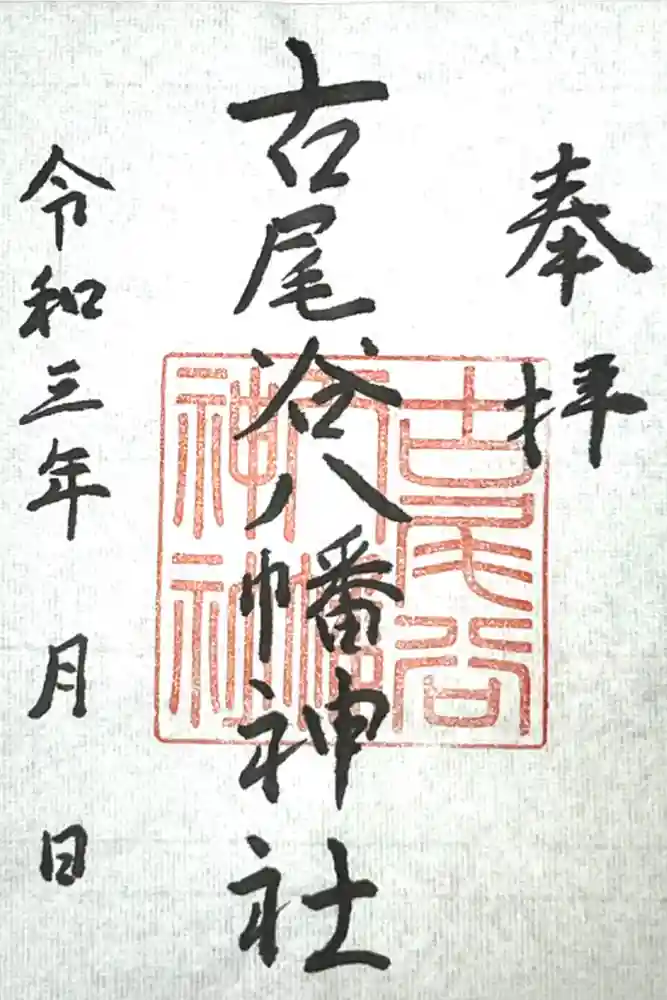 奉拝
古尾谷八幡神社
古尾谷
八幡
神社
令和三年 月 日